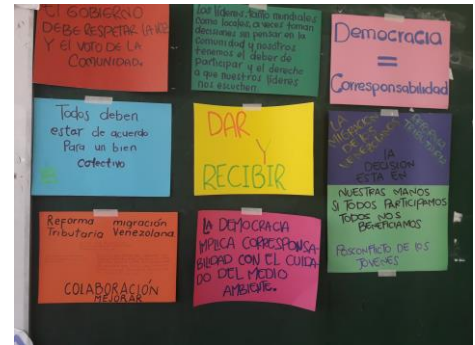 El GOBIERNO
DEBE RESPETAR LA VOZ
Y EL VOTO DE LA
COMUNIDAD.
Los líderes, tanto mundiales
como locales, a veces toman
decisiones sin pensar en la
comunidad y nosotros
tenemos el deber de
participar y el derecho
a que nuestros líderes
nos escuchen.
Democracia
=
Corresponsabilidad
Todos deben
estar de acuerdo
Para un bien
Colectivo
DAR
Y
RECIBIR
LA
MIGRACIÓN
DE LOS
VENEZOLANOS
REFORMA
TRIBUTARIA
LA
DECISION
ESTA EN
NUESTRAS MANOS
SI TODOS PARTICIPAMOS
TODOS NOS
BENEFICIAMOS
POSCONFLICTO DE LOS
JOVENES
Reforma migración
Tributaria Venezolana
COLABORACIÓN
MEJORAR
LA DEMOCRACIA
IMPLICA CORRESPONSA-
BILIDAD CON EL CUIDA-
DO DEL MEDIO
AMBIENTE.